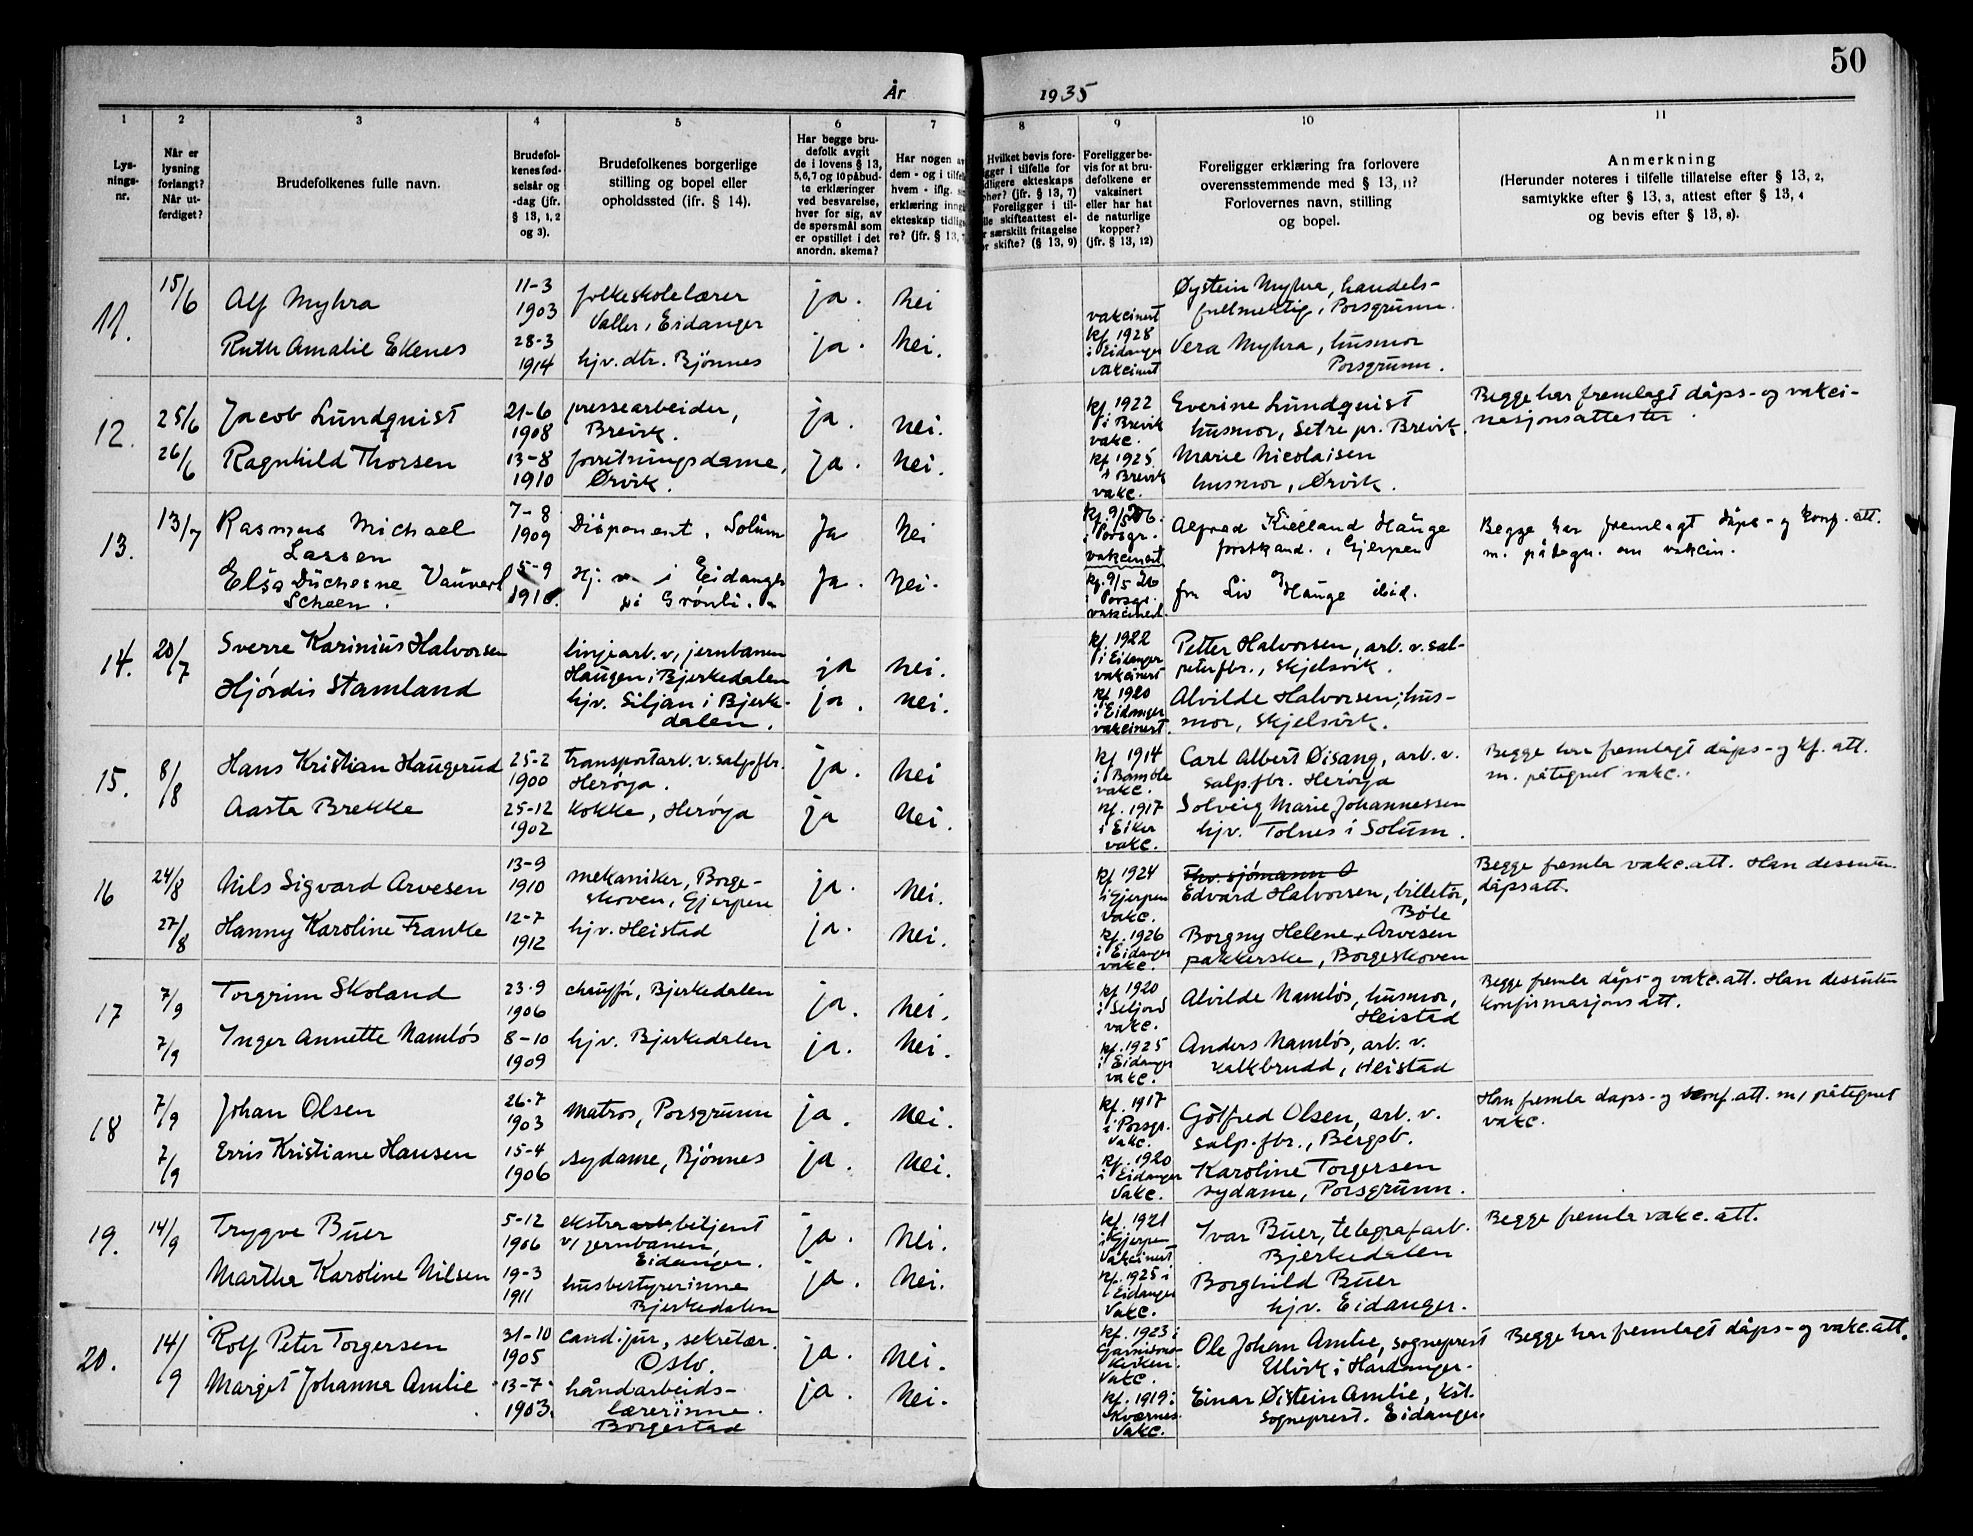 50
År 1935
1 2 3 4 5 6 7 8 9 10 11
Lys-
nings-
nr.
Når er
lysning
forlangt?
Når ut-
ferdiget?
Brudefolkenes fulle navn.
Brudefol-
kenes fød-
selsår og
-dag (jfr.
§ 13, 1, 2
og 3).
Brudefolkenes borgerlige
stilling og bopel eller
opholdssted (ifr. § 14).
Har begge bru-
defolk avgit
de i lovens § 13,
5,6,7 og 10 påbud-
te erklæringer
ved besvarelse,
hver for sig, av
de spørsmål som
er opstillet i det
anordn. skema?
Har nogen av
dem - og i tilfelle
hvem - iflg. sin
erklæring inngått
ekteskap tidlige-
re? (jfr. § 13, 7
Hvilket bevis fore-
igger i tilfelle for
dligere ekteskaps
phør? (jfr. § 13, 7)
Foreligger i til-
lle skifteattest el-
r særskilt fritagelse
or skifte? (§ 13, 9)
Foreligger be-
vis for at bru-
defolkene er
vaksinert
eller har hat
de naturlige
kopper?
(jfr. § 13, 12)
Foreligger erklæring fra forlovere
overensstemmende med § 13, 11?
Forlovernes navn, stilling
og bopel.
Anmerkning
(Herunder noteres i tilfelle tillatelse efter § 13, 2,
samtykke efter § 13, 3, attest efter § 13, 4
og bevis efter § 13, 8).
11.
15/6
Alf Myhra
11-3
1903
folkeskolelærer
Valler, Eidanger
ja. nei
vakcinert
Øystein Myhra, handels-
fullmektig, Porsgrunn.
Ruth Amalie Ekenes
28-3
1914
hjv. dtr. Bjönnes
ja. nei.
kf. 1928
i Eidanger
vakcinert
Vera Myhra, husmor
Porsgrunn.
12.
25/6
Jacob Lundquist
21-6
1908
pressearbeider,
Brevik.
ja. nei.
kf. 1922
i Brevik
vakc.
Everine Lundquist
husmor, Setre pr. Brevik.
Begge har fremlagt dåps- og vakci-
nasjonsattester
26/6
Ragnhild Thorsen
13-8
1910
forretningsdame,
Ørvik.
ja. nei.
kf. 1925
i Brevik
vakc.
Marie Nicolaisen
husmor, Ørvik.
13.
13/7
Rasmus Michael
Lassen
7-8
1909
Disponent, Solum
Ja nei
kf. 9/5 26.
i Porsgr.
vakcinert
Alfred Kielland Hauge
forstkand., Gjerpen
Begge har fremlagt dåps- og konf. att.
m. påtegn. om vakcin.
Elsa Duchesne Vauvert
Scheen.
5-9
1910.
Hj. v. i Eidanger
på Grønli.
Ja. nei.
kf. 9/5 26
i Porsgr.
vakcinert.
og
fru Liv Hauge ibid.
14.
20/7
Sverre Karinius Halvorsen
linjearb. v. jernbanen
Haugen i Bjerkedalen
ja nei.
kf. 1922
i Eidanger
vakcinert
Petter Halvorsen, arb. v. sal-
peterfbr., Skjelsvik.
Hjördis Stamland
hjv. Siljan i Bjerke-
dalen.
ja. nei.
kf. 1920
i Eidanger
vakcinert.
Alvilde Halvorsen, hus-
mor, Skjelsvik.
15.
8/8
Hans Kristian Haugerud
25-2
1900
transportarb. v. salp.fbr.
Herøya.
ja. nei
kf 1914
i Bamble
vakc.
Carl Albert Øisang, arb. v.
salp.fbr. Herøya
Begge har fremlagt dåps- og kf. att.
m. påtegnet vakc.
Aasta Brekke
25-12
1902
kokke, Herøya
ja nei.
kf. 1917
i Eiker
vakc.
Solveig Marie Johannessen
hjv. Tolnes i Solum.
16
24/8
Nils Sigvard Arvesen
13-9
1910
mekaniker, Borge-
skoven, Gjerpen
ja. nei.
kf 1924
i Gjerpen
vakc.
Fhv. sjömann
Edvard Halvorsen, billetör,
Böle
Begge fremla vakc.att. Han dessuten
dåpsatt.
27/8
Hanny Karoline Franke
12-7
1912
hjv. Heistad
ja. nei.
kf. 1926
i Eidanger
vakc.
Borgny Helene Arvesen
pakkerske, Borgeskoven
17
7/9
Torgrim Skoland
23-9
1906
chauffør, Bjerkedalen
ja. nei.
kf 1920
i Seljord
vakc.
Alvilde Namlös, husmor,
Heistad
Begge fremla dåps- og vakc.att. Han dessuten
konfirmasjonsatt.
7/9
Inger Annette Namlös
8-10
1909
hjv. Bjerkedalen
ja. nei.
kf. 1925
i Eidanger
vakc.
Anders Namlös, arb. v.
kalkbrudd, Heistad
18
7/9
Johan Olsen
26-7
1903
matros, Porsgrunn
ja. nei.
kf. 1917
i Porsgr.
vakc.
Gotfred Olsen, arb. v.
salp.fbr., Bergsb.
Han fremla daps- og konf. att. m/ påtegnet
vakc.
7/9
Erris Kristiane Hansen
15-4
1906
sydame, Bjønnes
ja. nei.
kf. 1920
i Eidanger
vakc.
Karoline Torgersen
sydame, Porsgrunn.
19.
14/9
Trygve Buer
5-12
1906
ekstraarb.betjent
v/ jernbanen,
Eidanger.
ja. nei.
kf. 1921
i Gjerpen
vakcinert
Ivar Buer, telegrafarb.
Bjerkedalen
Begge fremla vakc.att.
Martha Karoline Nilsen
19-3
1911
husbestyrerinne
Bjerkedalen
ja. nei.
kf. 1925 i
Eidanger
vakc.
Borghild Buer
hjv. Eidanger.
20.
14/9
Rolf Peter Torgersen
31-10
1905
cand. jur, sekretær.
Oslo.
ja. nei.
kf. 1923 i
Garnisons-
kirken.
vakc.
Ole Johan Amlie, sogneprest
Ulvik i Hardanger.
Begge har fremlagt dåps- og vakc.att.
Marget Johanne Amlie
13-7
1903.
håndarbeids-
lærerinne.
Borgestad
ja. nei.
kf. 1919 i
Kværnes.
vakc.
Einar Øistein Amlie, kst.
sogneprest. Eidanger.